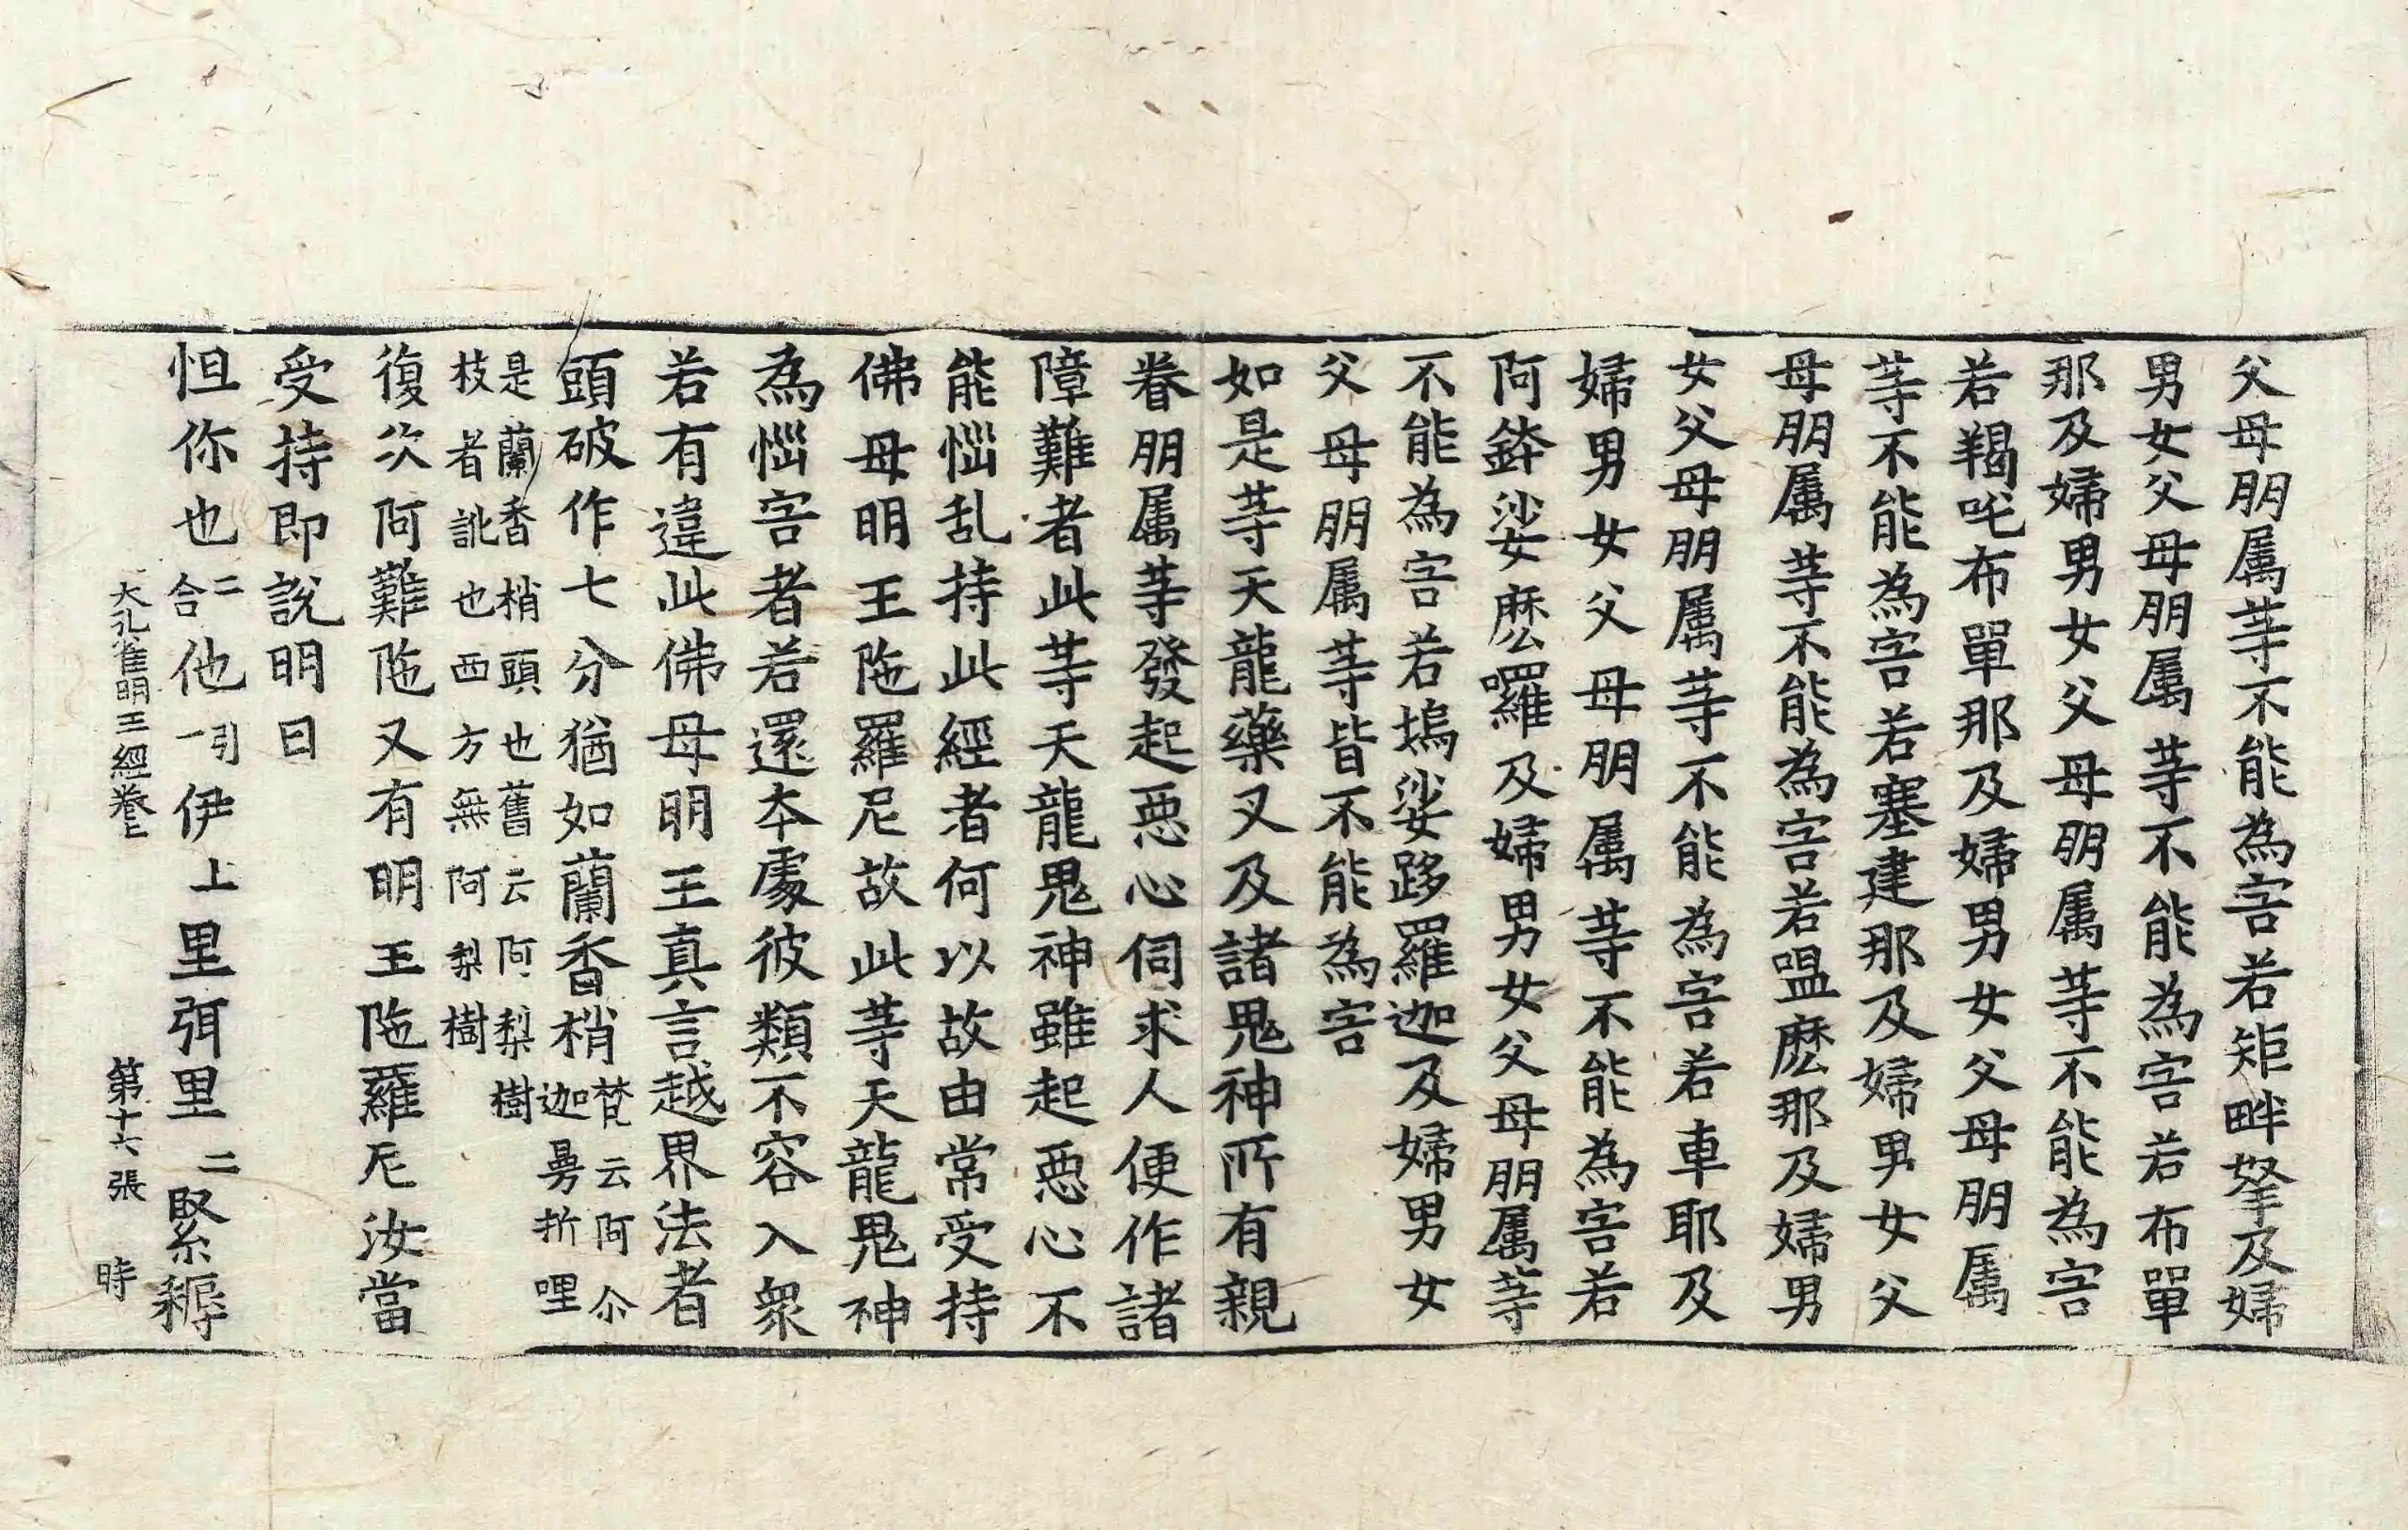 父母朋属䓁不能為害若矩畔拏及婦
男女父母朋属䓁不能為害若布單
那及婦男女父母朋属䓁不能為害
若羯吒布單那及婦男女父母朋属
䓁不能為害若塞建那及婦男女父
母朋属䓁不能為害若嗢麽那及婦男
女父母朋属䓁不能為害若車耶及
婦男女父母朋属䓁不能為害若
阿鉢娑麽囉及婦男女父母朋属䓁
不能為害若塢娑跢羅迦及婦男女
父母朋属䓁皆不能為害
如是䓁天龍藥叉及諸鬼神所有親
眷朋属䓁發起惡心伺求人便作諸
障難者此䓁天龍鬼神雖起惡心不
能惱乱持此經者何以故由常受持
佛母明王陁羅尼故此䓁天龍鬼神
為惱害者若還本處彼類不容入衆
若有違此佛母明王真言越界法者
頭破作七分猶如蘭香梢梵云阿尒
迦曼折哩
是蘭香梢頭也舊云阿梨樹
枝者訛也西方無阿梨樹
復次阿難陁又有明王陁羅尼汝當
受持即說明曰
怛你也二合他引一伊上里弭里二緊耨
大孔雀明王經卷上 第十六張 時